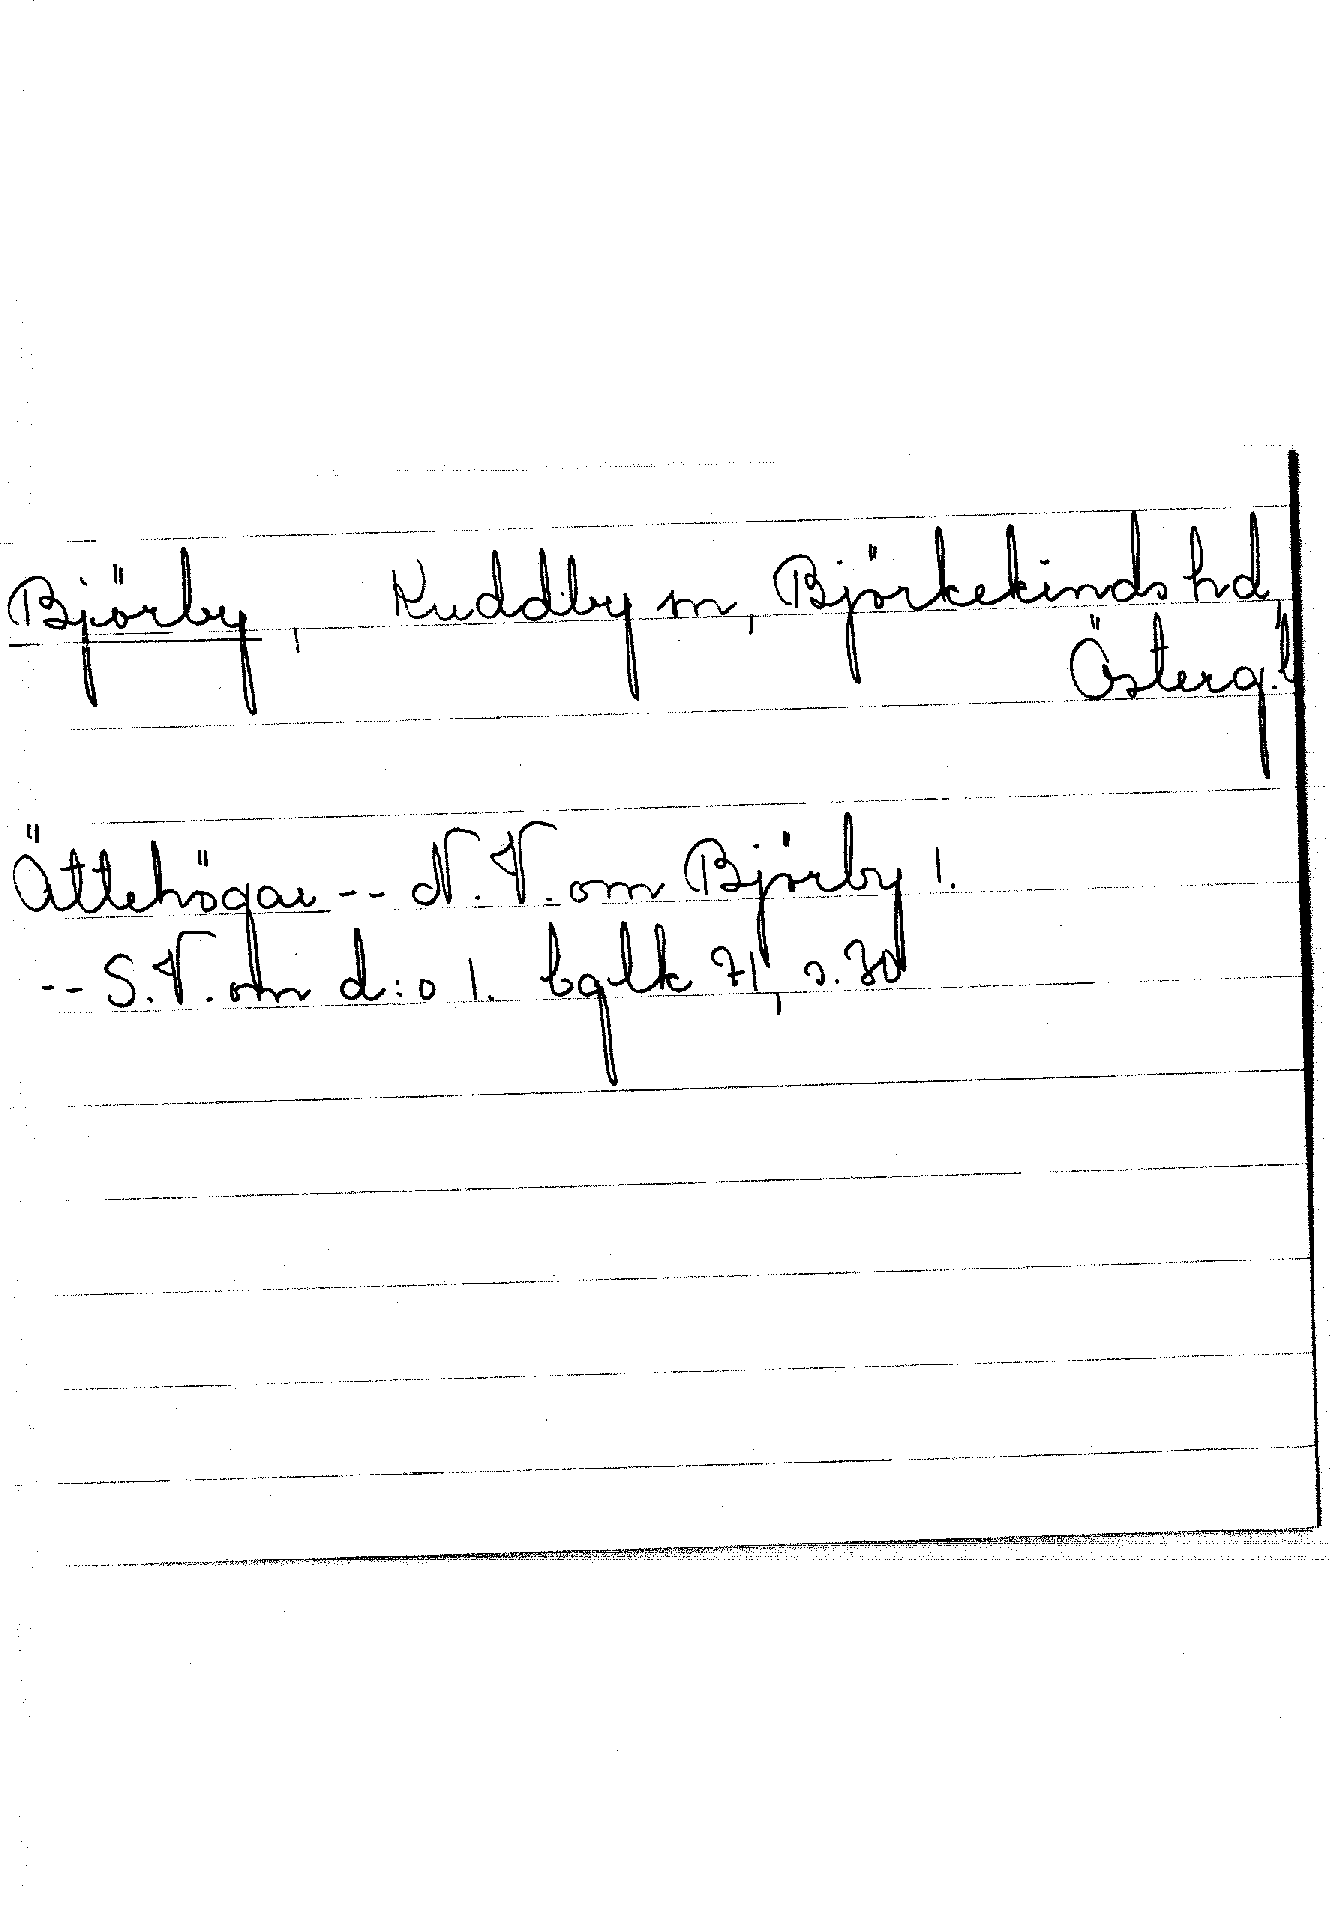 Björby, Kuddby sn, Björkekinds hd,
Österg. l
Ättehögar -- N.V. om Björby 1.
-- S.V. om d:o 1. bglk 71, s. 30